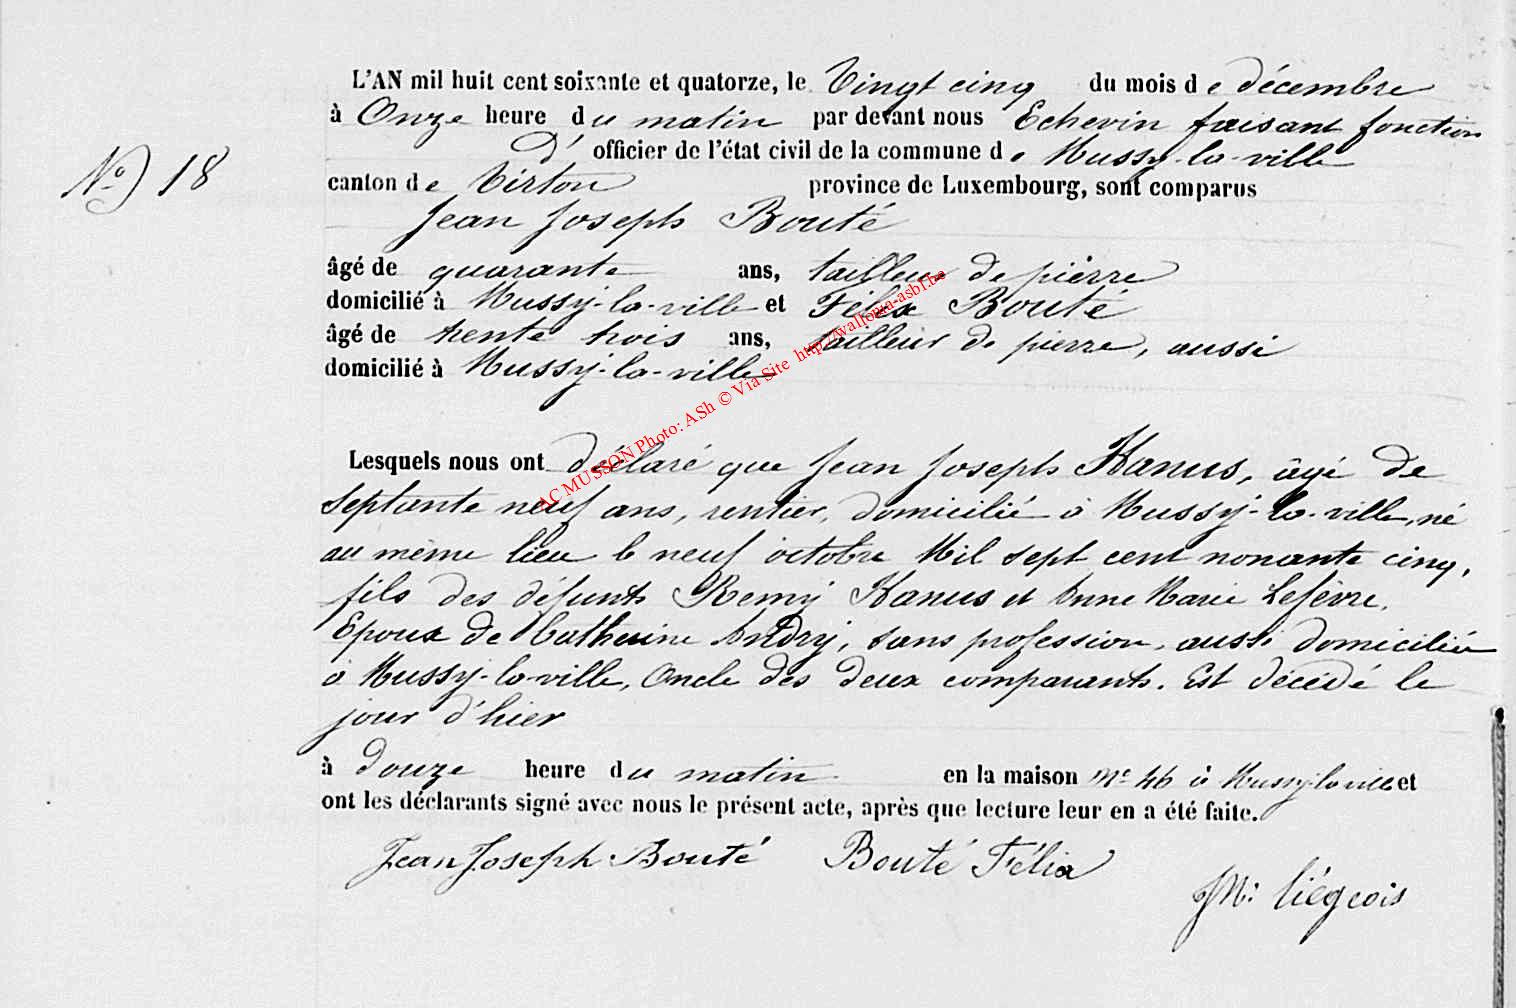 L'AN mil huit cent soixante et quatorze, le Vingt cinq du mois de décembre
à Onze heure du matin par devant nous Echevin faisant fonction
d' officier de l'état civil de la commune de Mussy-la-ville
N° 18
canton de Virton province de Luxembourg, sont comparus
Jean Joseph Bouté
âgé de quarante ans, tailleur de pierre
domicilié à Mussy-la-ville et Félix Bouté
âgé de trente trois ans, tailleur de pierre, aussi
domicilié à Mussy-la-ville
AC MUSSON Photo: ASh © Via Site http://wallonia-asbl.be
Lesquels nous ont déclaré que Jean Joseph Hanus, âgé de
septante neuf ans, rentier, domicilié à Mussy-la-ville, né
au même lieu le neuf octobre Mil sept cent nonante cinq,
fils des défunts Remy Hanus et Anne Marie Lefèvre.
Epoux de Catherine Andry, sans profession, aussi domiciliée
à Mussy-la-ville, Oncle des deux comparants. Est décédé le
jour d'hier
à douze heure du matin en la maison N° 46 à Mussy-la-ville et
ont les déclarants signé avec nous le présent acte, après que lecture leur en a été faite.
Jean Joseph Bouté Bouté Félix
JM: Liégeois